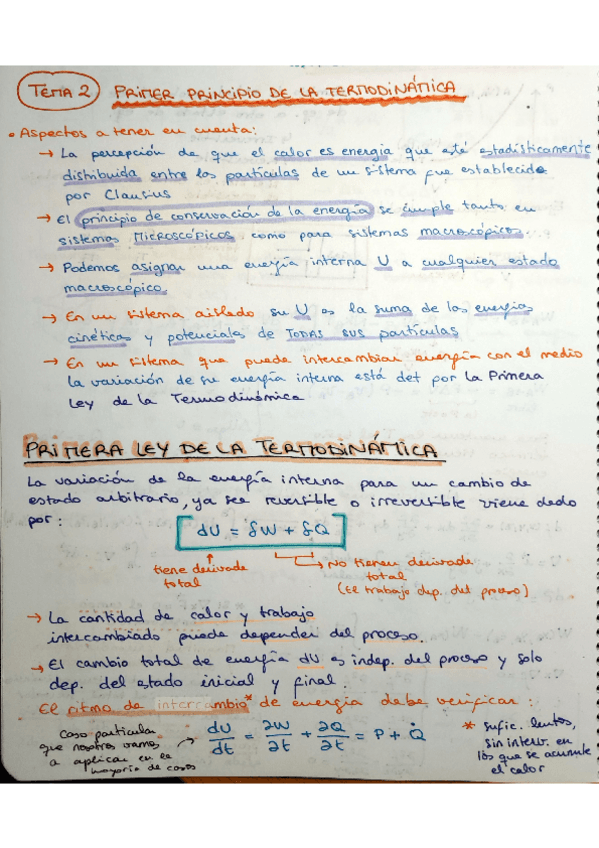 TEMA 2 PRIMER PRINCIPIO DE LA TERMODINÁMICA
• Aspectos a tener en cuenta:
→ La percepción de que el calor es energía que esté estadísticamente
distribuida entre las partículas de un sistema fue establecido
por Clausius
→ El principio de conservación de la energía se cumple tanto en
sistemas MICROSCÓPICOS como para sistemas macroscópicos.
→ Podemos asignar una energía interna U a cualquier estado
macroscópico.
→ En un sistema aislado su U es la suma de las energías
cinéticas y potenciales de TODAS SUS partículas
→ En un sistema que puede intercambiar energía con el medio
la variación de su energía interna está det por la Primera
Ley de la Termodinámica
PRIMERA LEY DE LA TERMODINÁMICA
La variación de la energía interna para un cambio de
estado arbitrario, ya sea reversible o irreversible viene dado
por:
dU = δW + δQ
tiene derivada
total
No tienen derivada
total
(El trabajo dep. del proceso)
→ La cantidad de calor y trabajo
intercambiado puede depender del proceso.
→ El cambio total de energía dU es indep. del proceso y solo
dep. del estado inicial y final.
El ritmo de intercambio* de energía debe verificar:
caso particular
que nosotros vamos
a aplicar en la
mayoría de casos
→ dU/dt = ∂W/∂t + ∂Q/∂t = P + Q̇
* sufic. lentos,
sin interv. en
los que se acumule
el calor